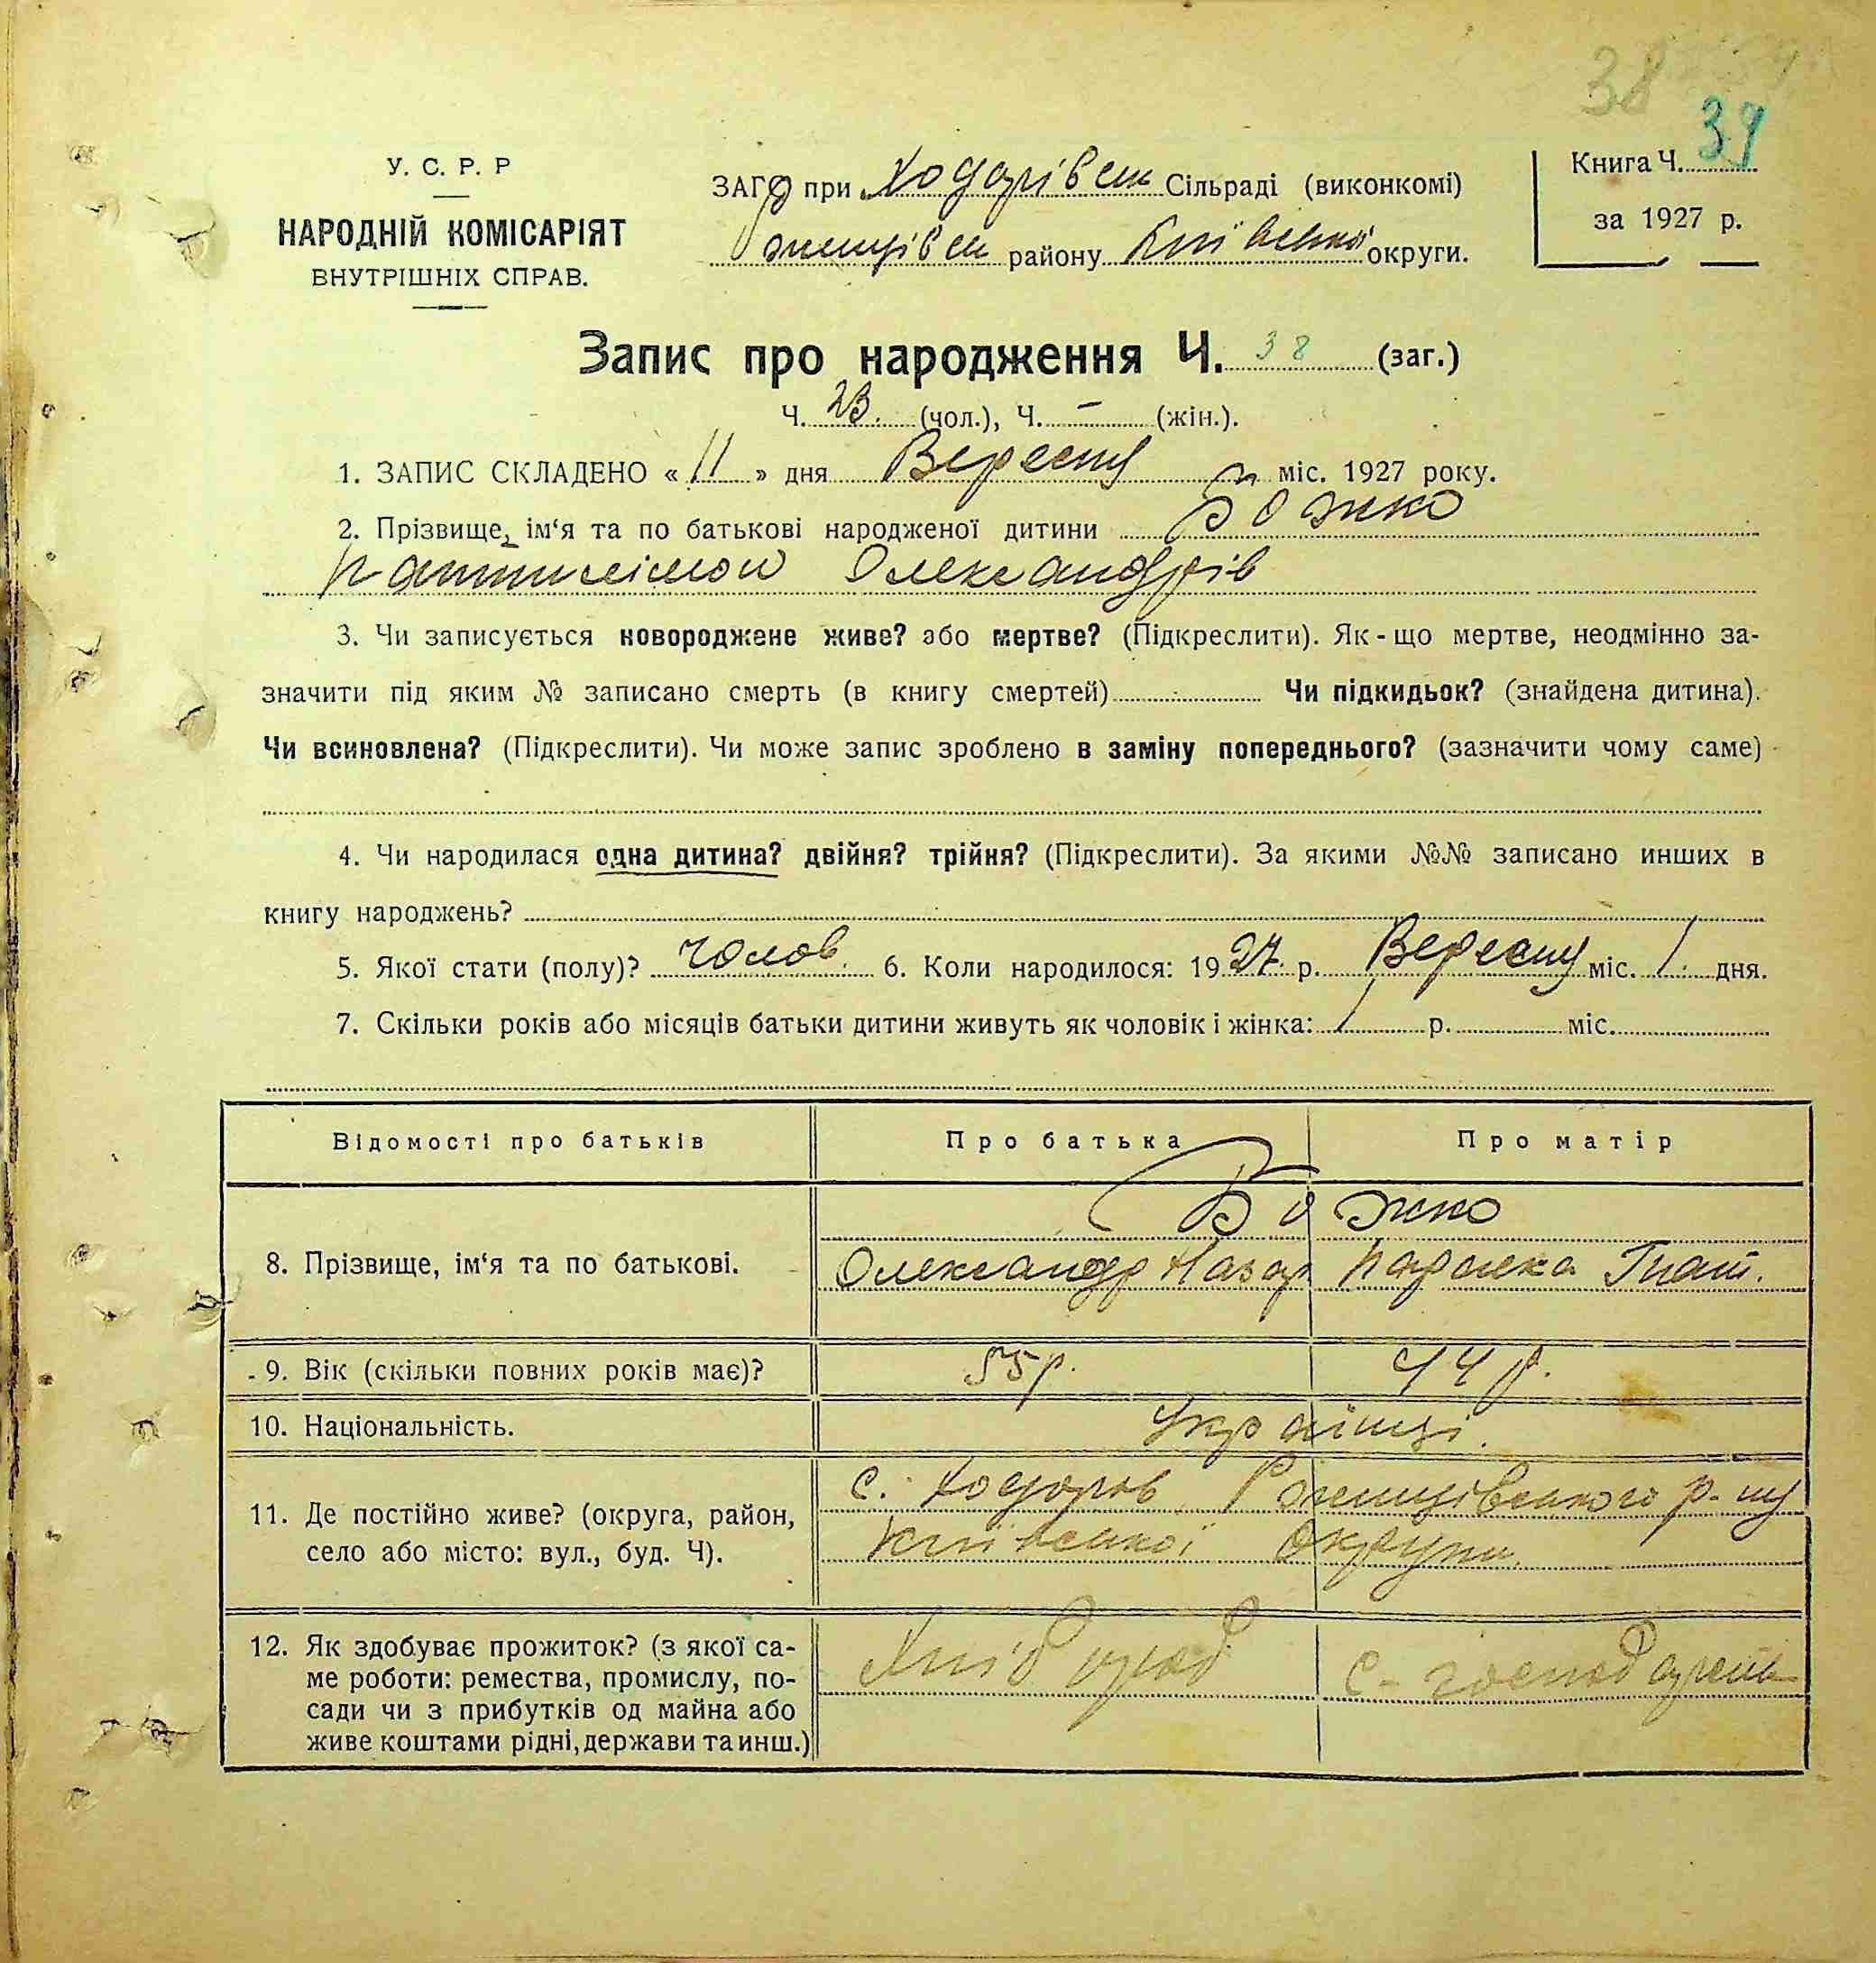 38
39
У. С. Р. Р
НАРОДНІЙ КОМІСАРІЯТ
ВНУТРІШНІХ СПРАВ.
ЗАГС при Ходорівськ Сільраді (виконкомі)
Ржищівськ району Київської округи.
Книга Ч.
за 1927 р.
Запис про народження Ч. 38 (заг.)
Ч. 23. (чол.), Ч. – (жін.).
1. ЗАПИС СКЛАДЕНО « 11 » дня Вересну міс. 1927 року.
2. Прізвище, ім‘я та по батькові народженої дитини Божко
Пантилімон Олександрів
3. Чи записується новороджене живе? або мертве? (Підкреслити). Як-що мертве, неодмінно за-
значити під яким № записано смерть (в книгу смертей) Чи підкидьок? (знайдена дитина).
Чи всиновлена? (Підкреслити). Чи може запис зроблено в заміну попереднього? (зазначити чому саме)
4. Чи народилася одна дитина? двійня? трійня? (Підкреслити). За якими №№ записано инших в
книгу народжень?
5. Якої стати (полу)? чолов. 6. Коли народилося: 1927 р. Вересну міс. 1. дня.
7. Скільки років або місяців батьки дитини живуть як чоловік і жінка: р. міс.
Відомості про батьків Про батька Про матір
8. Прізвище, ім‘я та по батькові. Божко
Олександр Назар Параска Гнат.
9. Вік (скільки повних років має)? 55 р. 44 р.
10. Національність. Українці.
11. Де постійно живе? (округа, район,
село або місто: вул., буд. Ч).
с. Ходорів Ржищівського р-ну
Київської округи.
12. Як здобуває прожиток? (з якої са-
ме роботи: ремества, промислу, по-
сади чи з прибутків од майна або
живе коштами рідні, держави та инш.)
Хлібороб с-господарств